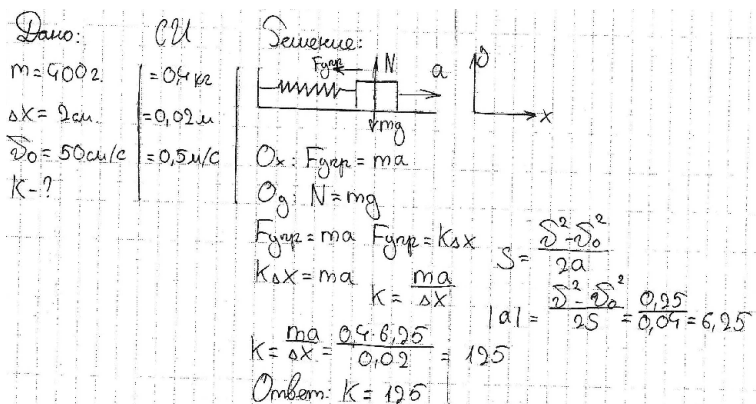 Дано:
СИ
m=400г.
=0,4кг
Δx=2см.
=0,02м
υ₀=50см/с
=0,5м/с
K-?
Решение:
Fупр
N
a
mg
υ
x
Ox: Fупр=ma
Oy: N=mg
Fупр=ma Fупр=KΔx
KΔx=ma K=ma/Δx
S=(υ²-υ₀²)/2a
|a|=(υ²-υ₀²)/2S=0,25/0,04=6,25
K=ma/Δx=0,4·6,25/0,02=125
Ответ: K=125